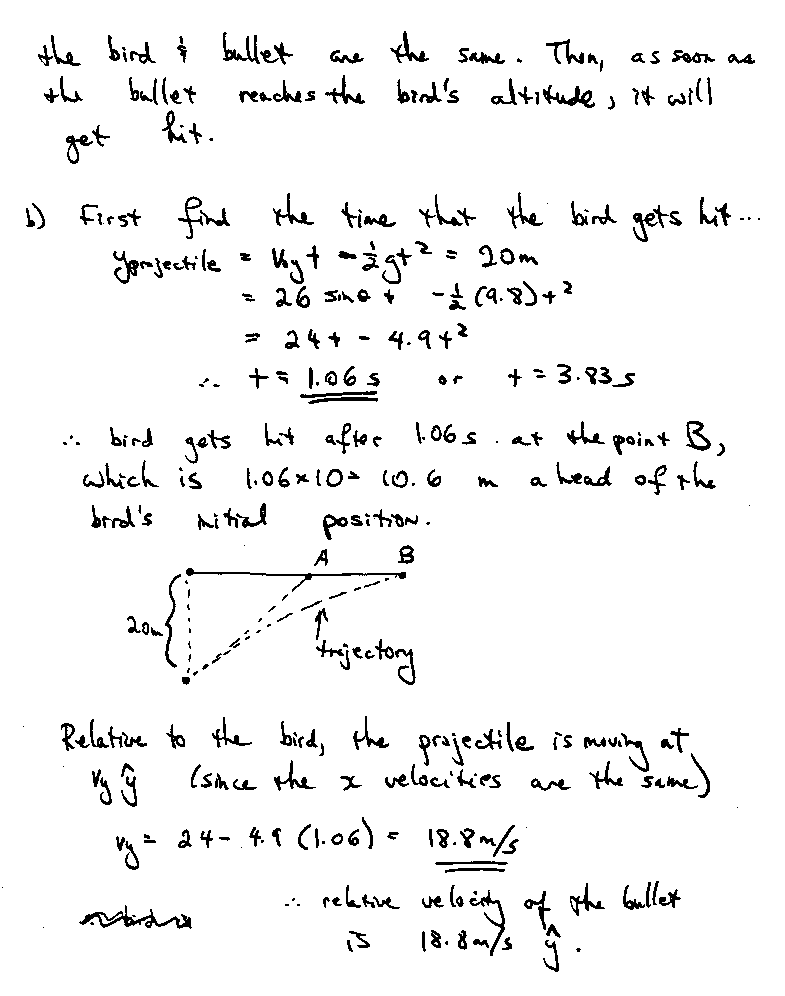 the bird & bullet are the same. Then, as soon as
the bullet reaches the bird's altitude, it will
get hit.
b) First find the time that the bird gets hit...
yprojectile = V₀yt - ½gt² = 20m
= 26 sinθ t - ½(9.8)t²
= 24t - 4.9t²
∴ t = 1.06 s or t = 3.83 s
∴ bird gets hit after 1.06 s. at the point B,
which is 1.06×10 = 10.6 m ahead of the
bird's initial position.
A B
20m
trajectory
Relative to the bird, the projectile is moving at
vy ŷ (since the x velocities are the same)
vy = 24 - 4.9 (1.06) = 18.8 m/s
∴ relative velocity of the bullet
is 18.8 m/s ŷ.